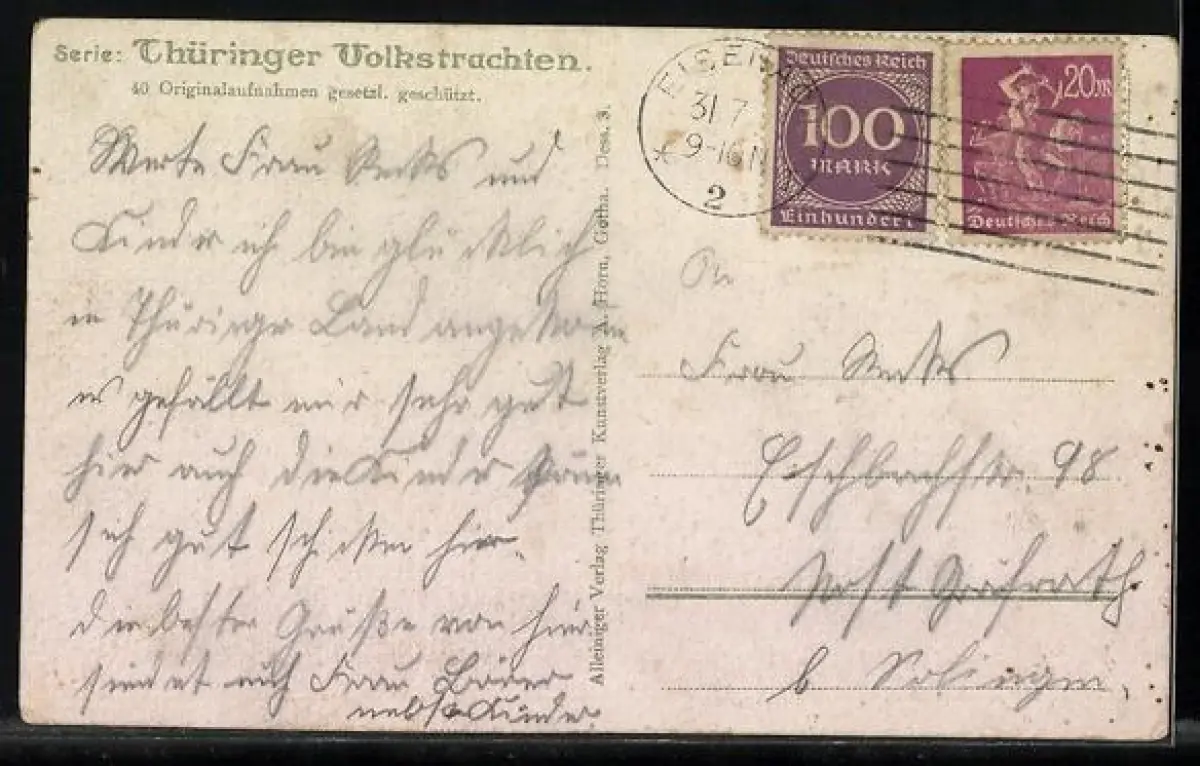 Serie: Thüringer Volkstrachten.
40 Originalaufnahmen gesetzl. geschützt.
Werte Frau und
Kinder ich bin glücklich
in Thüringer Land angekom
es gefällt mir sehr gut
hier auch die Kinder
sich gut schicken hier.
die besten Grüße von hier
sendet euch Frau
nebst Kinder
Alleiniger Verlag Thüringer Kunstverlag A. Horn, Gotha. Des. 3.
31 7
2
Deutsches Reich
100
MARK
Einhundert
20M
Deutsches Reich
An
Frau
Eschbachstr. 98
Post Gräfrath
b Solingen,